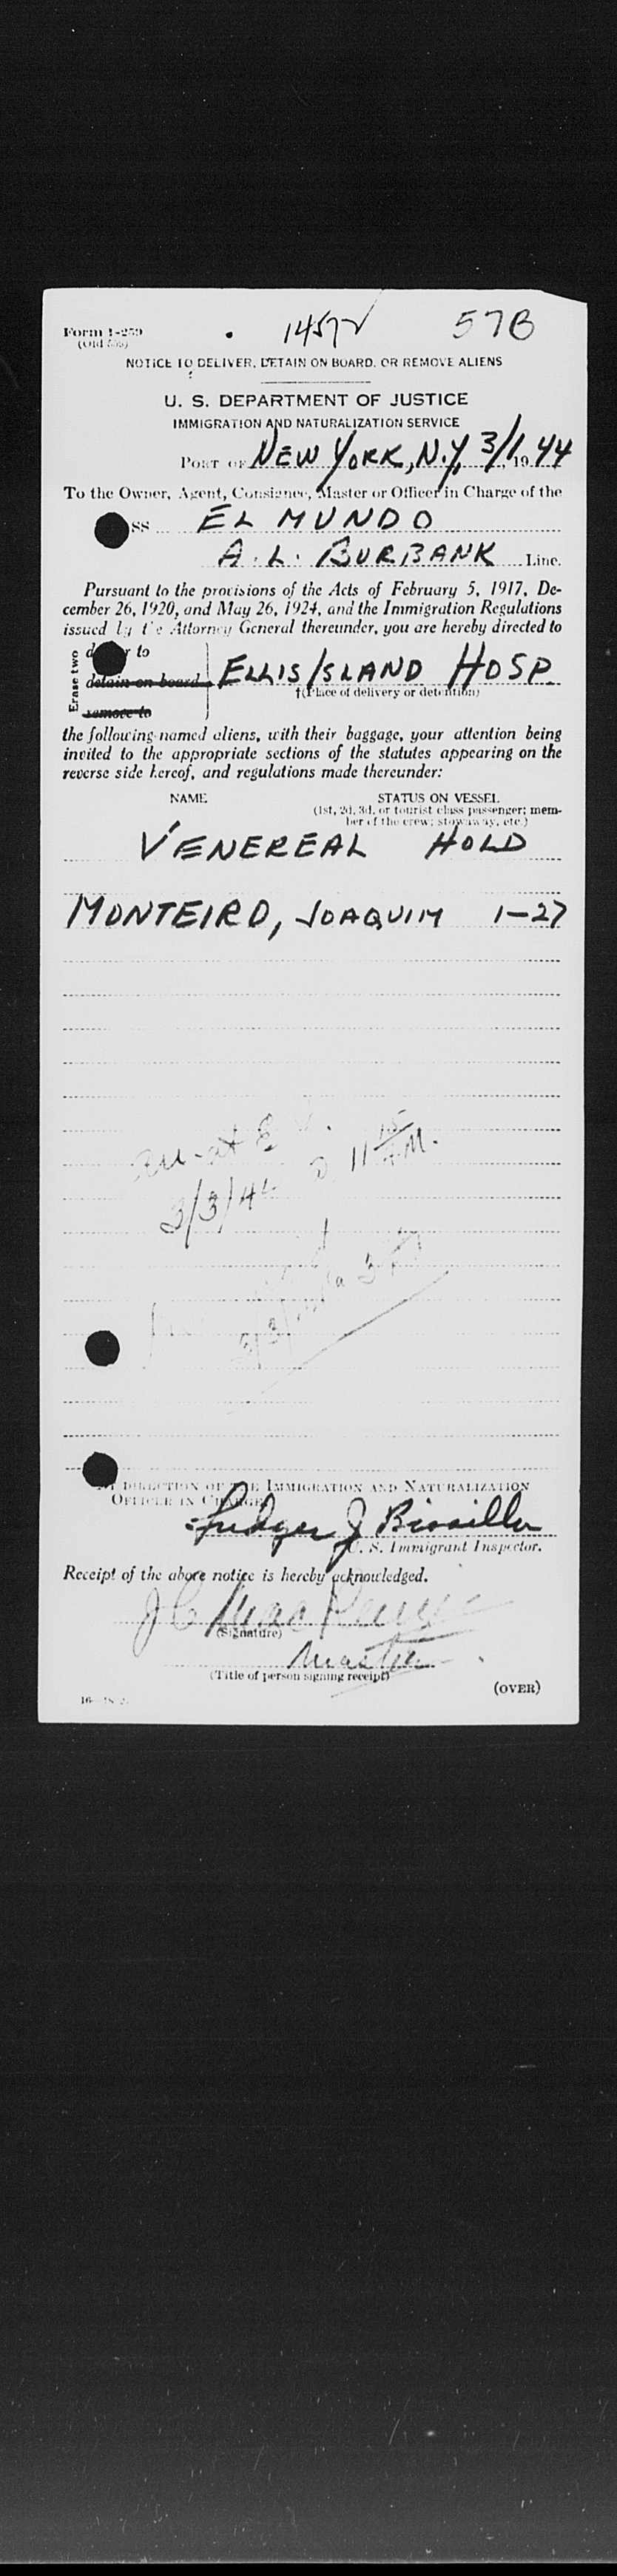 Form I-259
(Old 555)
14572
57B
NOTICE TO DELIVER, DETAIN ON BOARD, OR REMOVE ALIENS
U. S. DEPARTMENT OF JUSTICE
IMMIGRATION AND NATURALIZATION SERVICE
PORT OF NEW YORK, N.Y, 3/1, 1944
To the Owner, Agent, Consignee, Master or Officer in Charge of the
SS EL MUNDO
A. L. BURBANK Line.
Pursuant to the provisions of the Acts of February 5, 1917, De-
cember 26, 1920, and May 26, 1924, and the Immigration Regulations
issued by the Attorney General thereunder, you are hereby directed to
Erase two
to
detain on board
ELLIS ISLAND HOSP.
†(Place of delivery or detention)
remove to
the following-named aliens, with their baggage, your attention being
invited to the appropriate sections of the statutes appearing on the
reverse side hereof, and regulations made thereunder:
NAME STATUS ON VESSEL
(1st, 2d, 3d, or tourist class passenger; mem-
ber of the crew; stowaway, etc.)
VENEREAL HOLD
MONTEIRO, JOAQUIM 1-27
at E
3/3/44 11 15 A.M.
3/3/
DIRECTION OF THE IMMIGRATION AND NATURALIZATION
OFFICER IN CHARGE
J
U. S. Immigrant Inspector.
Receipt of the above notice is hereby acknowledged.
J C Mac
(Signature)
Master
(Title of person signing receipt)
(OVER)
16